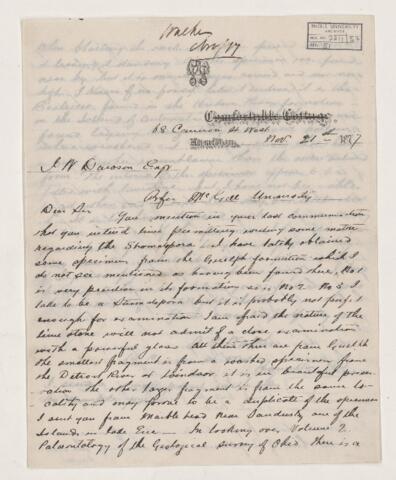 Walker
Nov/77
McGILL UNIVERSITY
ARCHIVES
ACC. NO.
REF.
Comfortable Cottage,
68 Cameron St West
Hamilton, Nov. 21st 1877
J W Dawson Esqr
Profr McGill University
Dear Sir
You mention in your last communication
that you intend time permitting writing some matter
regarding the Stromatopora. I have lately obtained
some specimens from the Guelph formation which I
do not see mentioned as having been found there, No 1
is very peculiar in its formation so is No 2. No 3 I
take to be a Stromatopora but it is probably not perfect
enough for examination I am afraid the nature of the
lime stone will not admit of a close examination
with a powerful glass All then three are from Guelph
the smallest fragment is from a washed specimen from
the Detroit River at Windsor it is in beautiful preser-
vation the other larger fragment is from the same lo-
cality and may prove to be a duplicate of the specimen
I sent you from Marble head near Sandusky one of the
Islands in Lake Erie — In looking over Volume 2
Palaeontology of the Geological survey of Ohio there is a